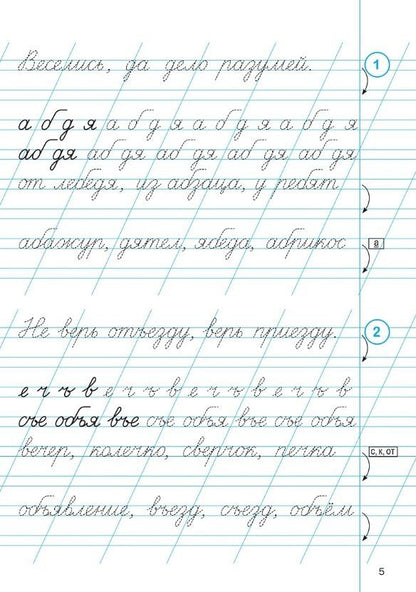 Веселись, да дело разумей.
1
а б д я а б д я а б д я а б д я
аб дя аб дя аб дя аб дя аб дя
от лебедя, из абзаца, у ребят
абажур, дятел, ябеда, абрикос
8
Не верь отъезду, верь приезду.
2
е ч ъ в е ч ъ в е ч ъ в е ч ъ в
съе объя въе съе объя въе съе объя
вечер, колечко, сверчок, печка
С, К, ОТ
объявление, въезд, съезд, объём
5